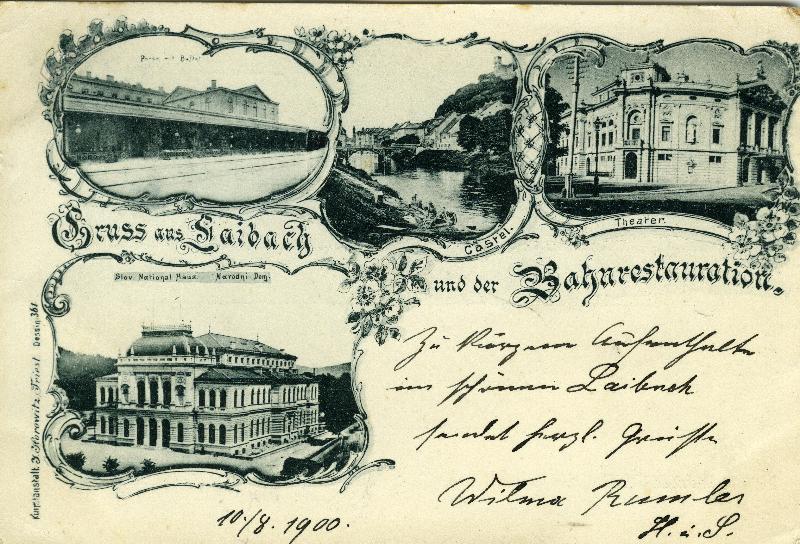 Perron mit Buffet
Gruss aus Laibach
Castel.
Theater.
und der Bahnrestauration.
Slov. National Haus. Narodni Dom.
Zu kurzem Aufenthalte
im schönen Laibach
sendet herzl. Grüße
Wilma
H. u. S.
10./8. 1900.
Kunstanstalt. J. Horowitz, Triest Dessin 361